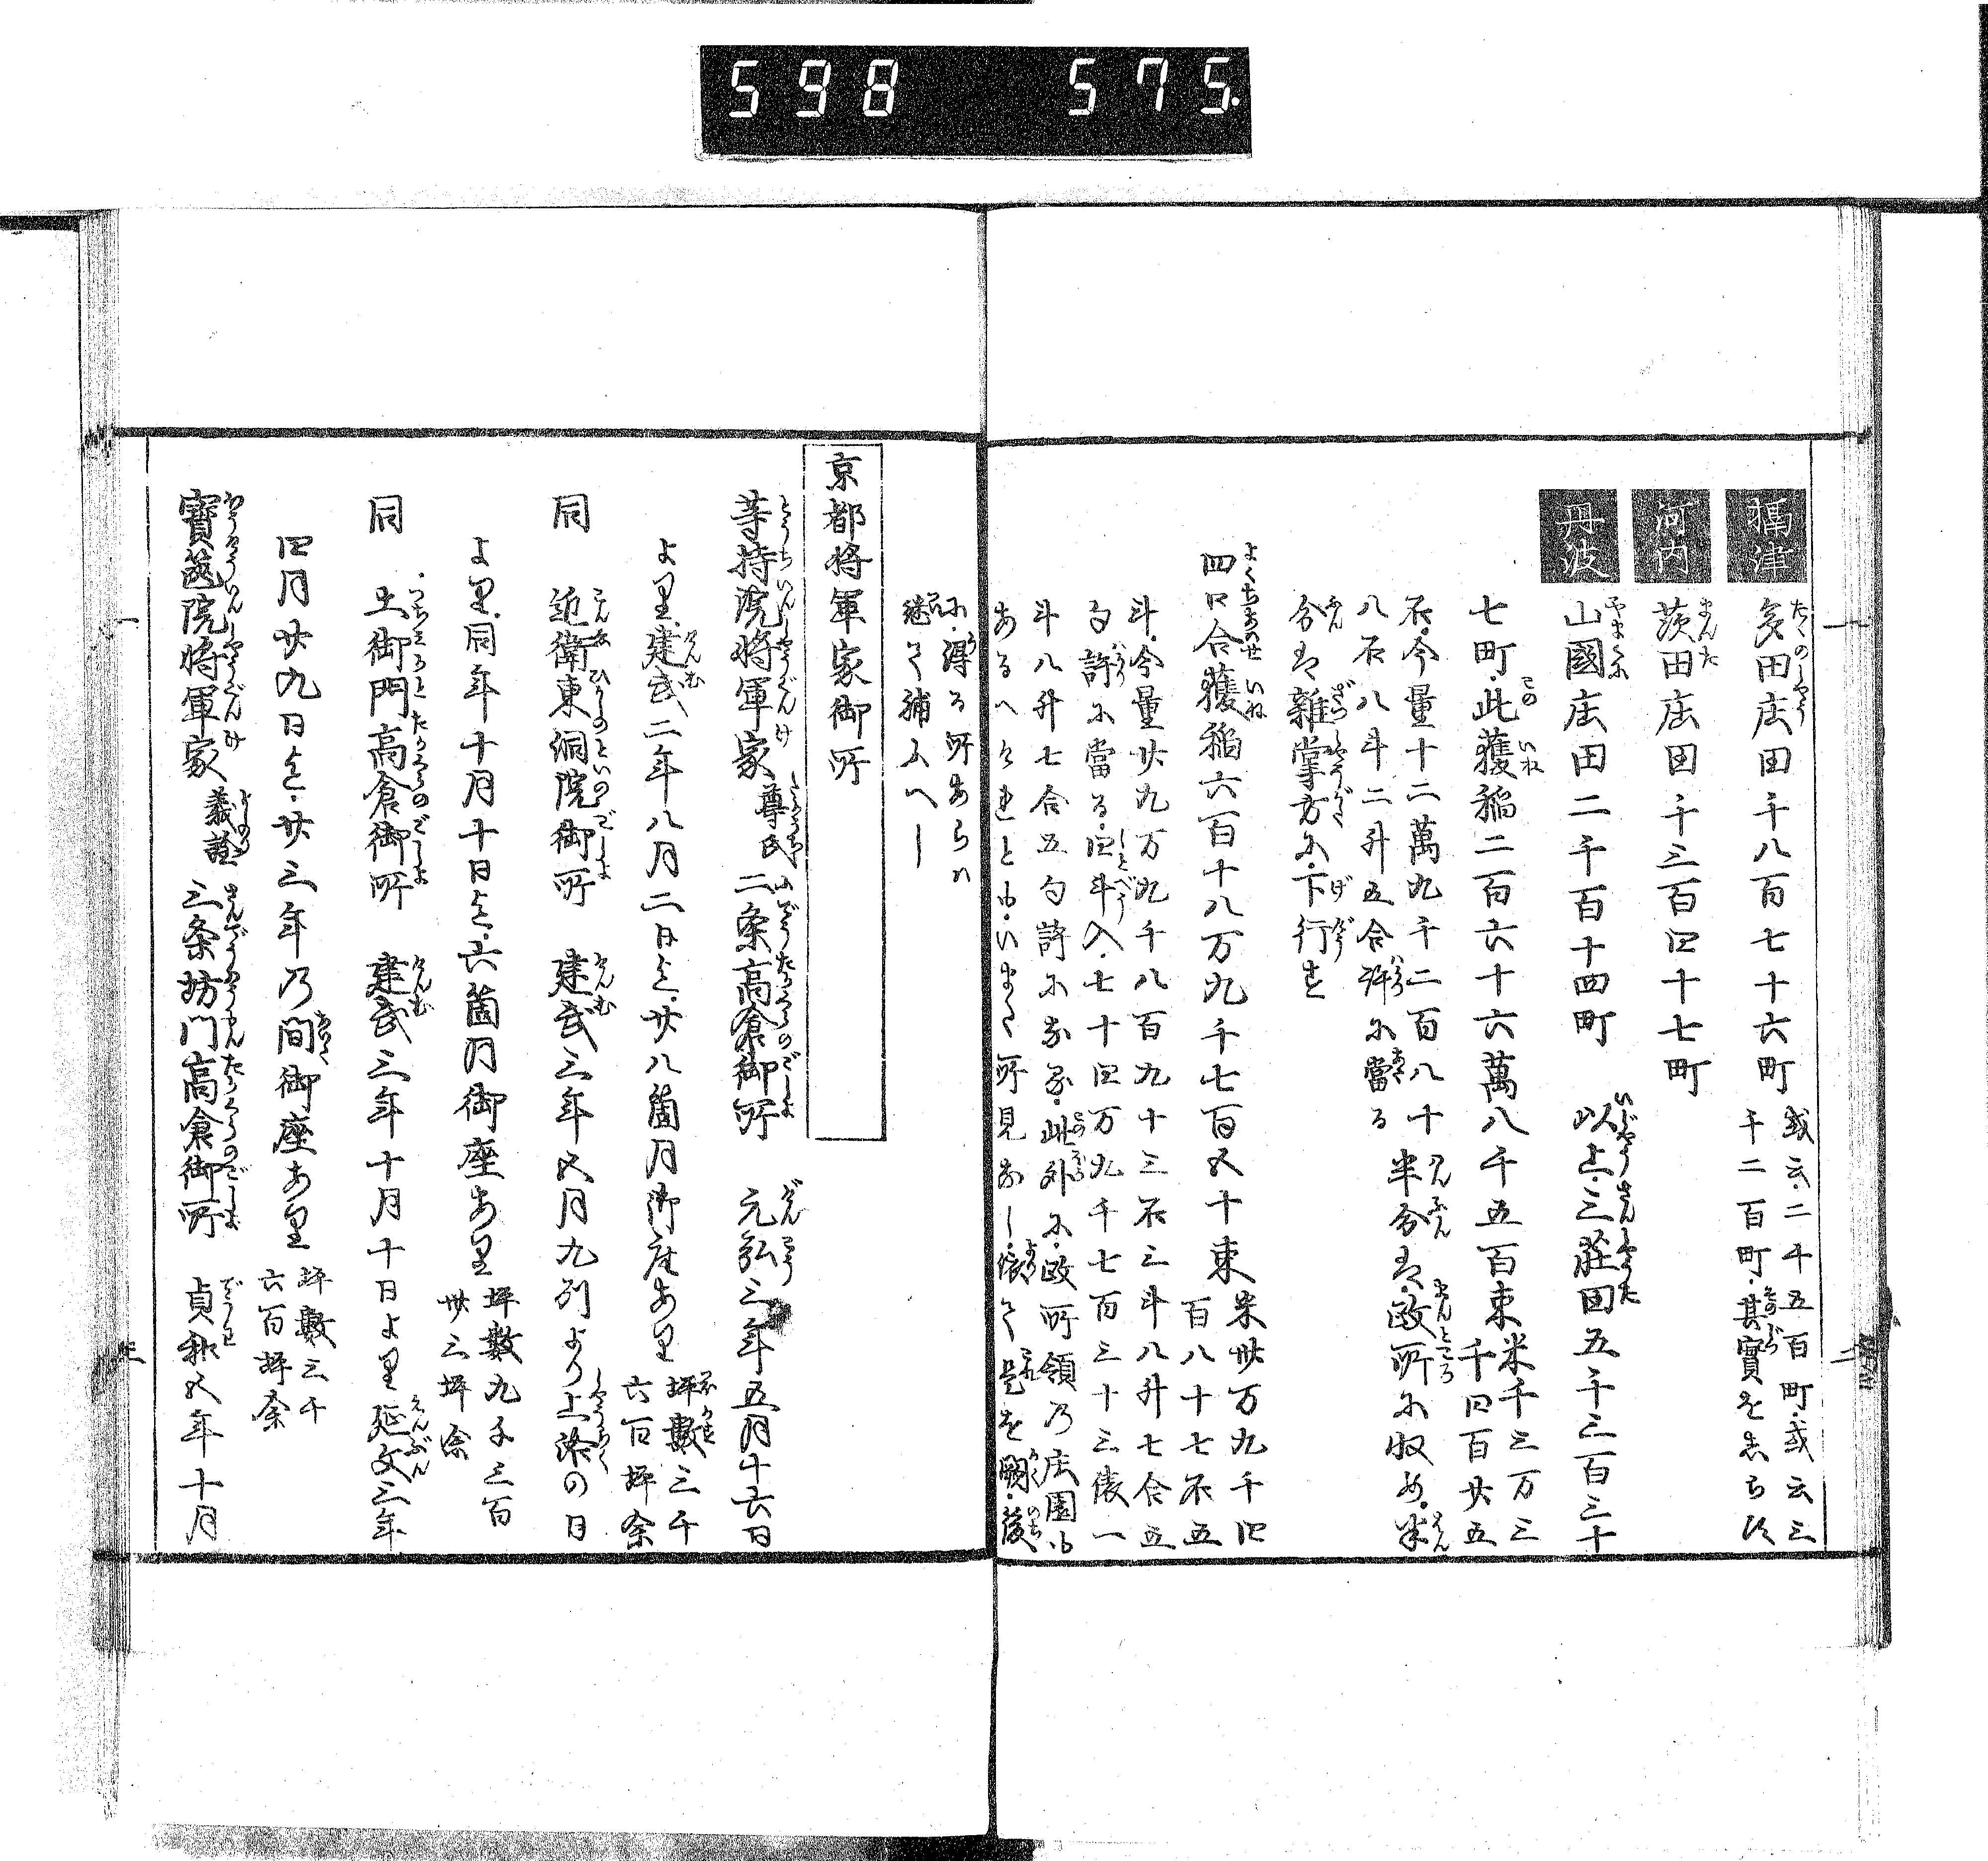 598 575.
攝津
多田庄田千八百七十六町
或云二千五百町或云三
千二百町其實を志らす
河内
茨田庄田千三百四十七町
丹波
山國庄田二千百十四町 以上三莊田五千三百三十
七町此穫稲二百六十六萬八千五百束
米千三万三
千四百廿五
石今量十二萬九千二百八十
八石八斗二升五合許に當る
半分は政所に収め半
分は雜掌方に下行す
四口合穫稲六百十八万九千七百五十束
米卅万九千四
百八十七石五
斗今量廿九万九千八百九十三石三斗八升七合五
勺許に當る四斗入七十四万九千七百三十三俵一
斗八升七合五勺許になる此外に政所領の庄園も
あるへけれともいまた所見なし依て是を闕後
に得る所あらは
継て補ふへし
京都将軍家御所
等持院将軍家
尊氏
二条高倉御所 元弘三年五月十六日
より建武二年八月二日迄廿八箇月御座あり
坪數三千
六百坪余
同 近衛東洞院御所 建武三年五月九州より上洛の日
より同年十月十日迄六箇月御座あり
坪数九千三百
卅三坪余
同 土御門高倉御所 建武三年十月十日より延文三年
四月廿九日迄廿三年の間御座あり
坪數三千
六百坪余
寳篋院将軍家
義詮
三条坊門高倉御所 貞和五年十月